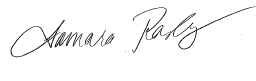 Tamara Rasby